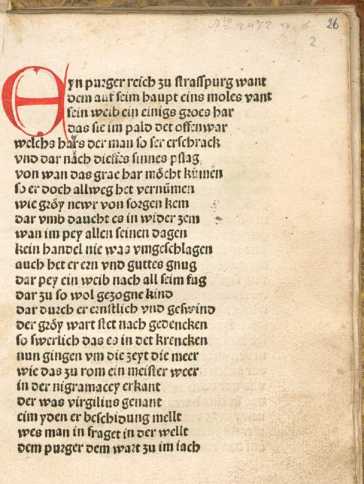 26
2
Eyn purger reich zu strasspurg want
dem auf seim haupt eins moles vant
sein weib ein einigs groes har
das sie im pald det offenwar
welchs hars der man so ser erschrack
vnd dar nach dieses sinnes pflag
von wan das grae har möcht kümen
so er doch allweg het vernümen
wie gröy newr von sorgen kem
dar vmb daucht es in wider zem
wan im pey allen seinen dagen
kein handel nie was vmgeschlagen
auch het er ern vnd guttes gnug
dar pey ein weib nach all seim fug
dar zu so wol gezogne kind
dar durch er ernstlich vnd geswind
der gröy wart stet nach gedencken
so swerlich das es in det krencken
nun gingen vm die zeyt die meer
wie das zu rom ein meister weer
in der nigramacey erkant
der was virgilius genant
eim yden er beschidung mellt
wes man in fraget in der wellt
dem purger dem wart zu im iach